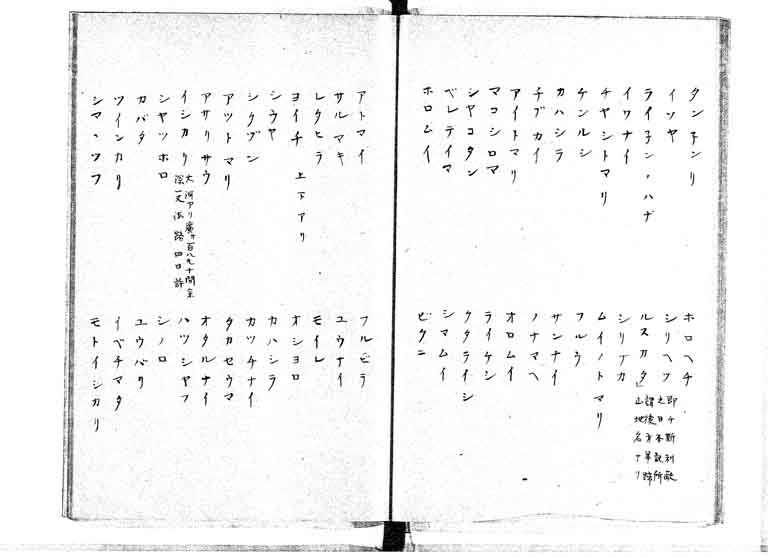 タン子ンリ
イソヤ
ライ子ン、ハナ
イワナイ
チヤシトマリ
ケンルシ
カハシラ
チブカイ
アイトマリ
マコシロマ
シヤコタン
ベレテイマ
ホロムイ
ホロヘチ
シリヘツ
ルスカタ
即チ斯利敝
之日本記所
謂後方羊蹄
山地名ナリ
シリブカ
ムイノトマリ
フルウ
サンナイ
ノナマヘ
オロムイ
ライケシ
クタライシ
シマムイ
ビクニ
アトマイ
サルマキ
レタヒラ
ヨイチ 上下アリ
シウヤ
シクヅン
アツトマリ
アサリサウ
イシカリ
大河アリ廣サ百八九十間余
深一丈海路四日許
シヤツホロ
カバタ
ツインカリ
シマ、ツフ
フルビラ
ユウナイ
モイレ
オシヨロ
カハシラ
カツチナイ
タカセウマ
オタルナイ
ハツシヤフ
シノロ
ユウバリ
イベチマタ
モトイシカリ